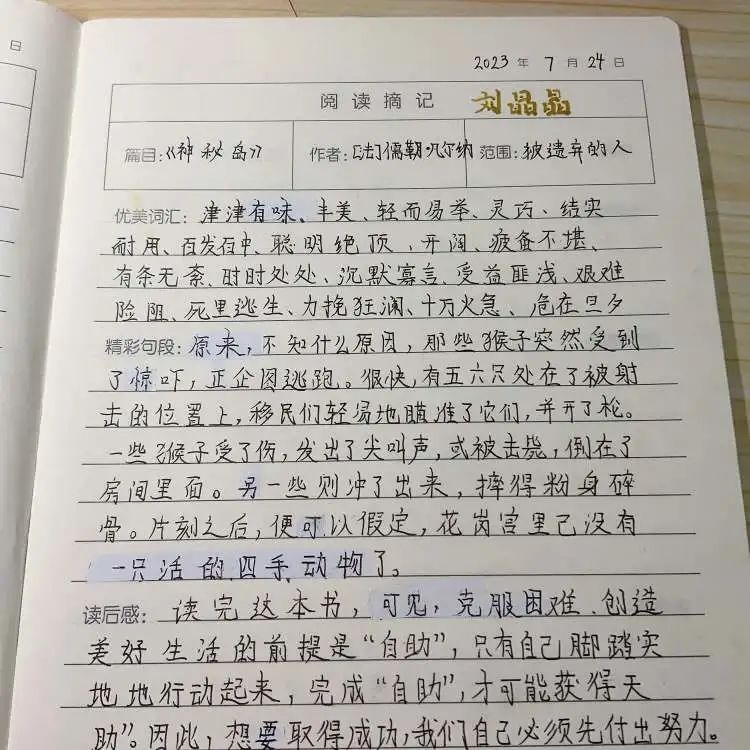 日
2023 年 7 月 24 日
阅读摘记 刘晶晶
篇目:《神秘岛》 作者:[法]儒勒·凡尔纳 范围:被遗弃的人
优美词汇: 津津有味、丰美、轻而易举、灵巧、结实
耐用、百发百中、聪明绝顶、开阔、疲备不堪、
有条无紊、时时处处、沉默寡言、受益匪浅、艰难
险阻、死里逃生、力挽狂澜、十万火急、危在旦夕
精彩句段: 原来,不知什么原因,那些猴子突然受到
了惊吓,正企图逃跑。很快,有五六只处在了被射
击的位置上,移民们轻易地瞄准了它们,并开了枪。
一些猴子受了伤,发出了尖叫声,或被击毙,倒在了
房间里面。另一些则冲了出来,摔得粉身碎
骨。片刻之后,便可以假定,花岗宫里已没有
一只活的四手动物了。
读后感: 读完这本书,可见,克服困难、创造
美好生活的前提是“自助”,只有自己脚踏实
地地行动起来,完成“自助”,才可能获得天
助”。因此,想要取得成功,我们自己必须先付出努力。